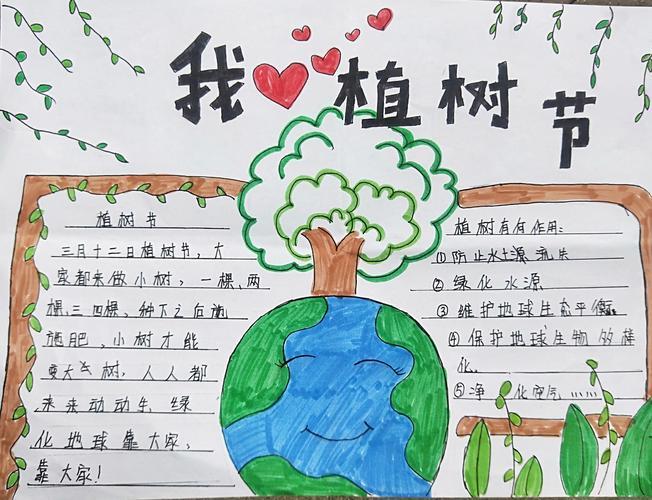 我植树节
植树节
三月十二日植树节,大
家都来做小树,一棵、两
棵、三四棵,种下之后施
施肥,小树才能
变大树,人人都
来来动动手 绿
化地球靠大家,
靠大家!
植树有何作用:
①防止水土源流失
②绿化水源
③维护地球生态平衡
④保护地球生物多样
化
⑤净化空气......